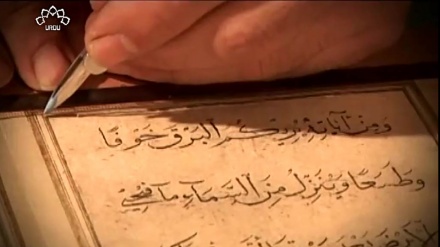 URDU
وَمِنْ آيَاتِهِ يُرِيكُمُ الْبَرْقَ خَوْفًا
وَطَمَعًا وَيُنَزِّلُ مِنَ السَّمَاءِ مَاءً فَيُحْيِي